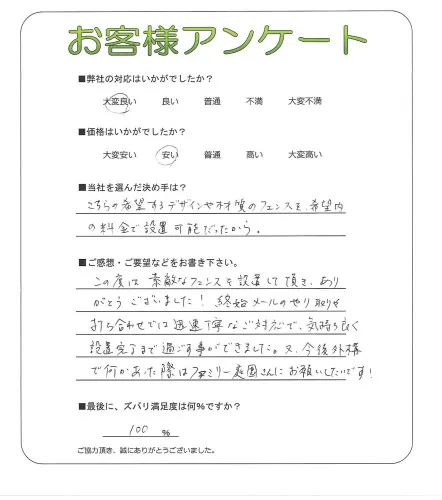 お客様アンケート
■弊社の対応はいかがでしたか？
大変良い 良い 普通 不満 大変不満
■価格はいかがでしたか？
大変安い 安い 普通 高い 大変高い
■当社を選んだ決め手は？
こちらの希望するデザインや材質のフェンスを、希望内
の料金で設置可能だったから。
■ご感想・ご要望などをお書き下さい。
この度は素敵なフェンスを設置して頂き、あり
がとうございました！ 終始メールのやり取りや
打ち合わせでは迅速丁寧なご対応で、気持ち良く
設置完了まで過ごす事ができました。又、今後外構
で何かあった際はファミリー庭園さんにお願いしたいです！
■最後に、ズバリ満足度は何％ですか？
100 %
ご協力頂き、誠にありがとうございました。